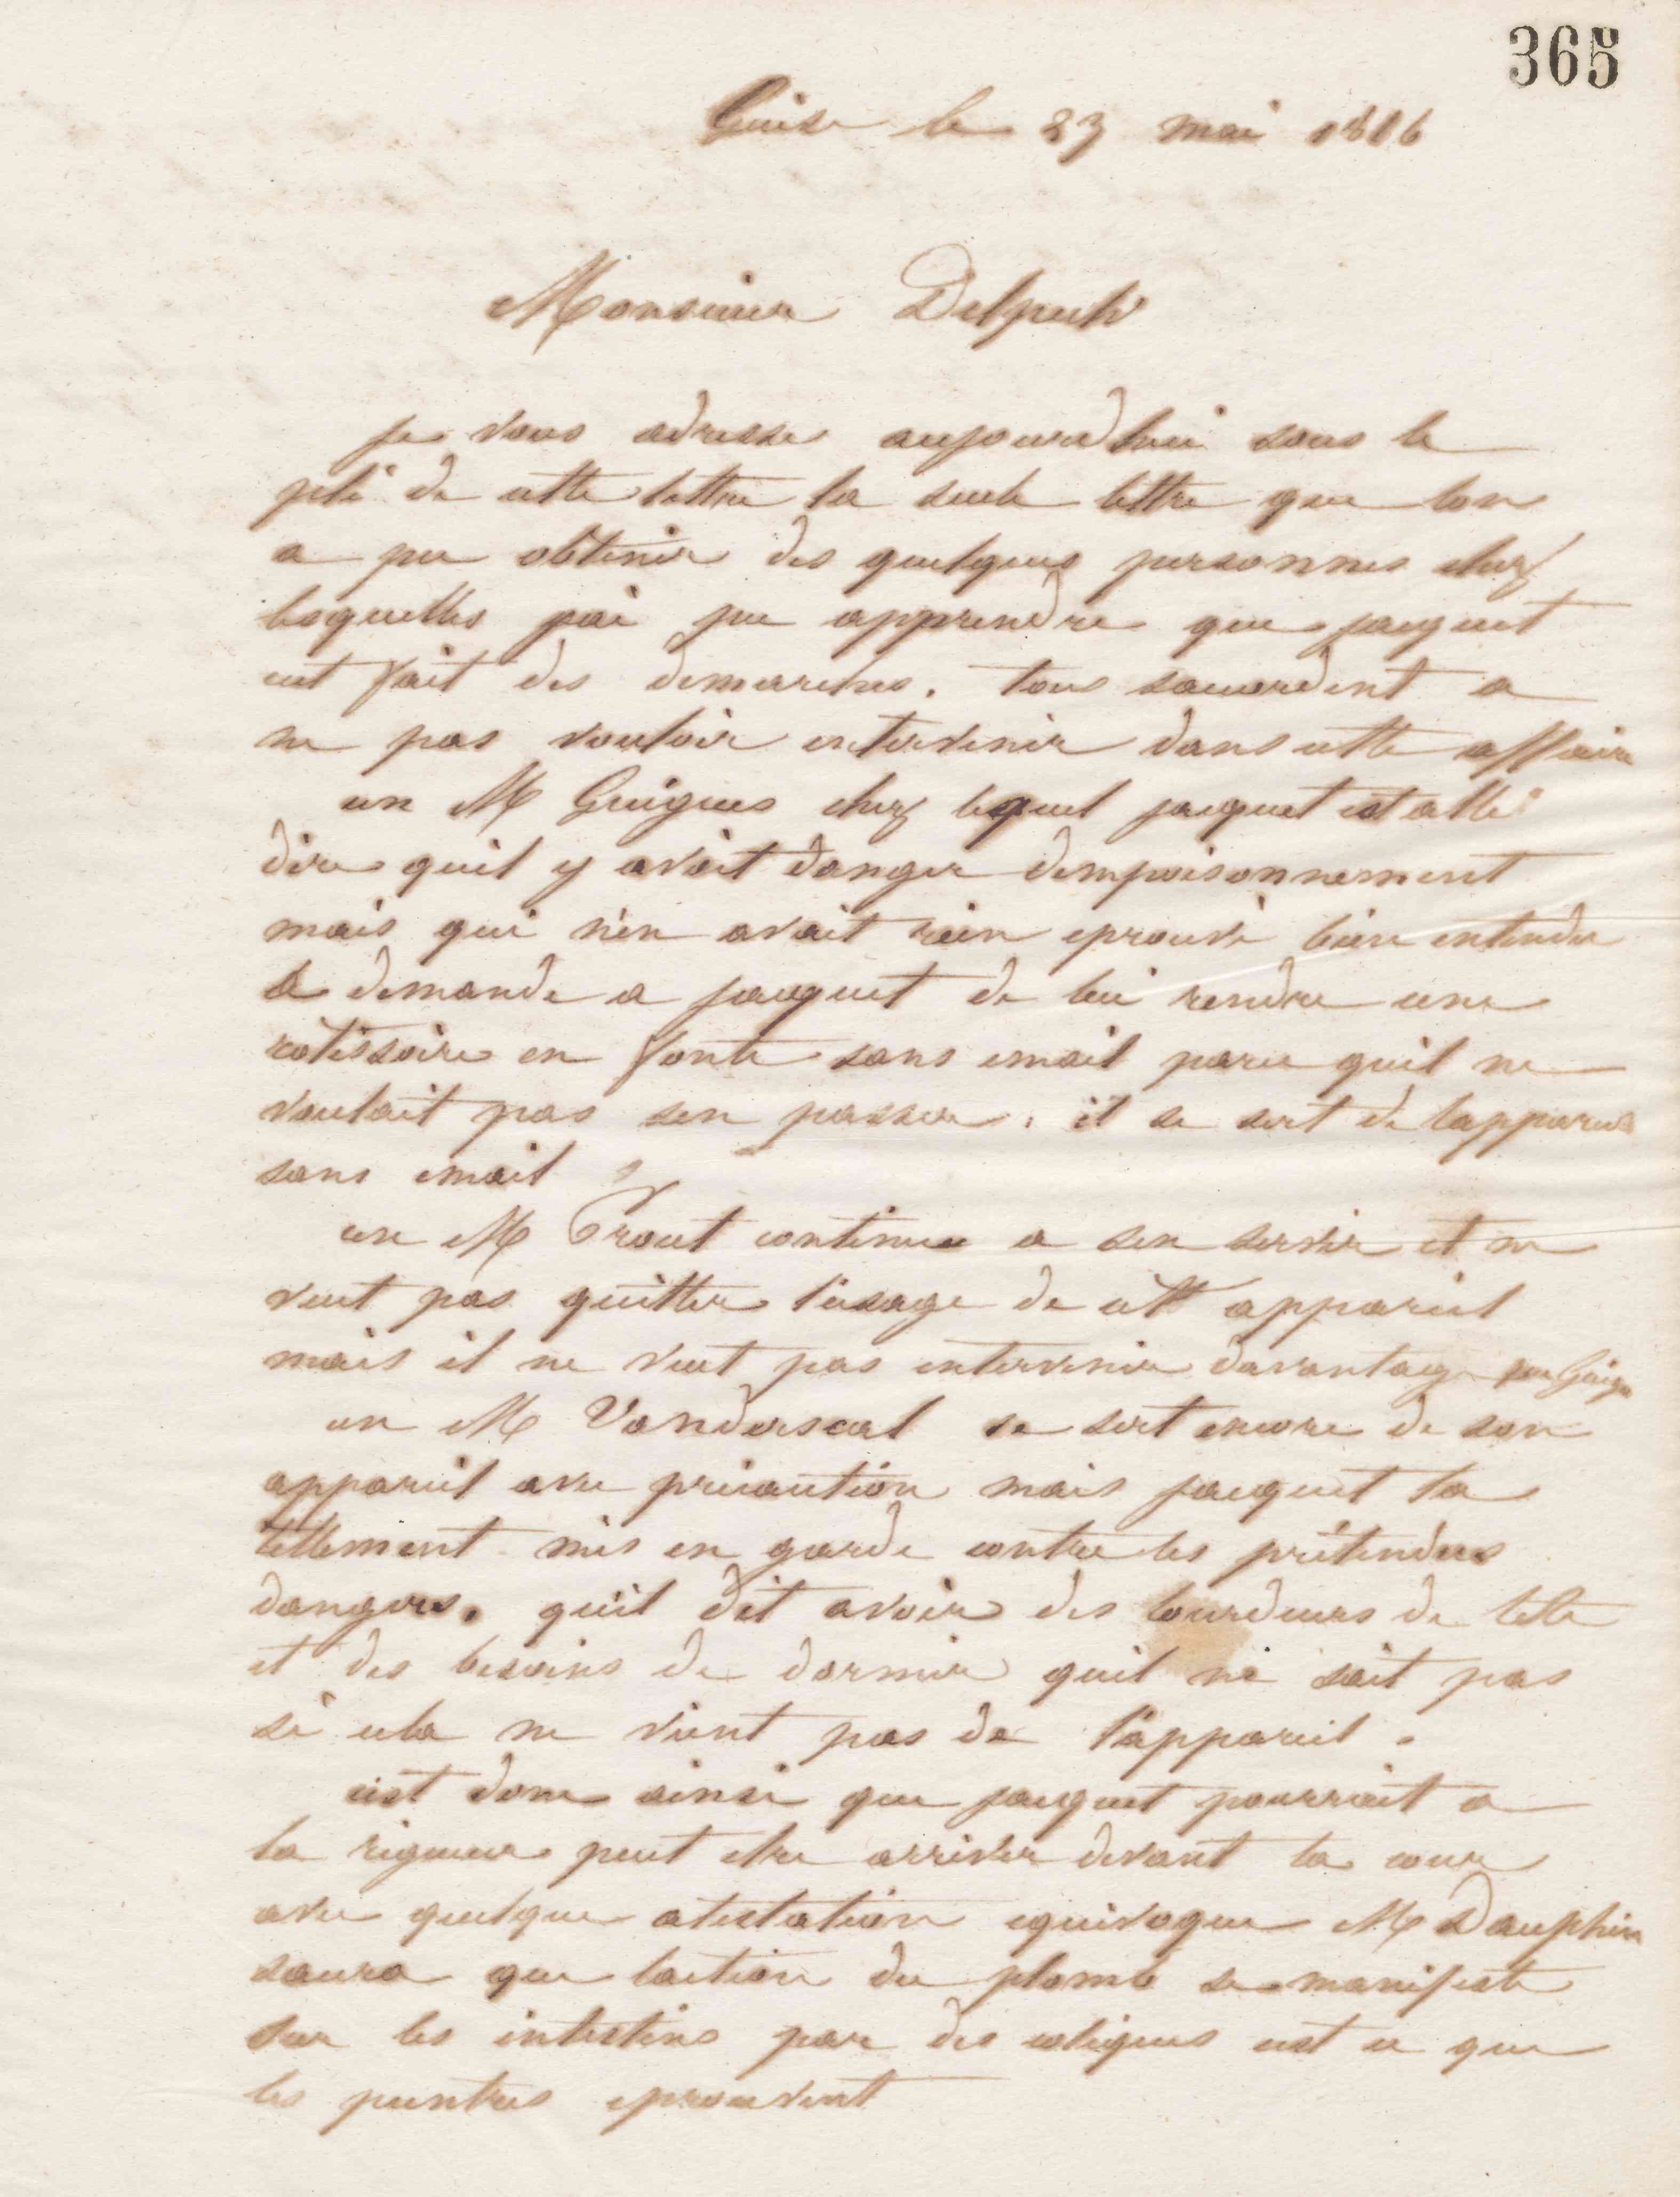 365
Guise le 23 mai 1866
Monsieur Delpech
je vous adresse aujourdhui sous le
pli de cette lettre la seule lettre que lon
a pu obtenir des quelques personnes chez
lesquelles jai pu apprendre que jacquet
eut fait des demarches. tous saccordent a
ne pas vouloir intervenir dans cette affaire
un M Guigues chez lequel jacquet est allé
dire quil y avait danger dempoisonnement
mais qui n'en avait rien eprouvé bien entendu
a demande a jacquet de lui rendre une
rotissoire en fonte sans email parce quil ne
voulait pas sen passer. il se sert de lappareil
sans email
un M Prout continue a sen servir et ne
veut pas quitter l'usage de cett appareil
mais il ne veut pas intervenir davantage que Guigu
un M Vanderscal se sert encore de son
appareil avec precaution mais jacquet la
tellement mis en garde contre les prétendus
dangers. quil dit avoir des lourdeurs de tete
et des besoins de dormir quil ne sait pas
si cela ne vient pas de l'appareil.
cest donc ainsi que jacquet pourrait a
la rigueur peut etre arriver devant la cour
avec quelque atestation equivoque M Dauphin
saura que laction du plomb se manifeste
sur les intestins par des coliques cest ce que
les peintres eprouvent